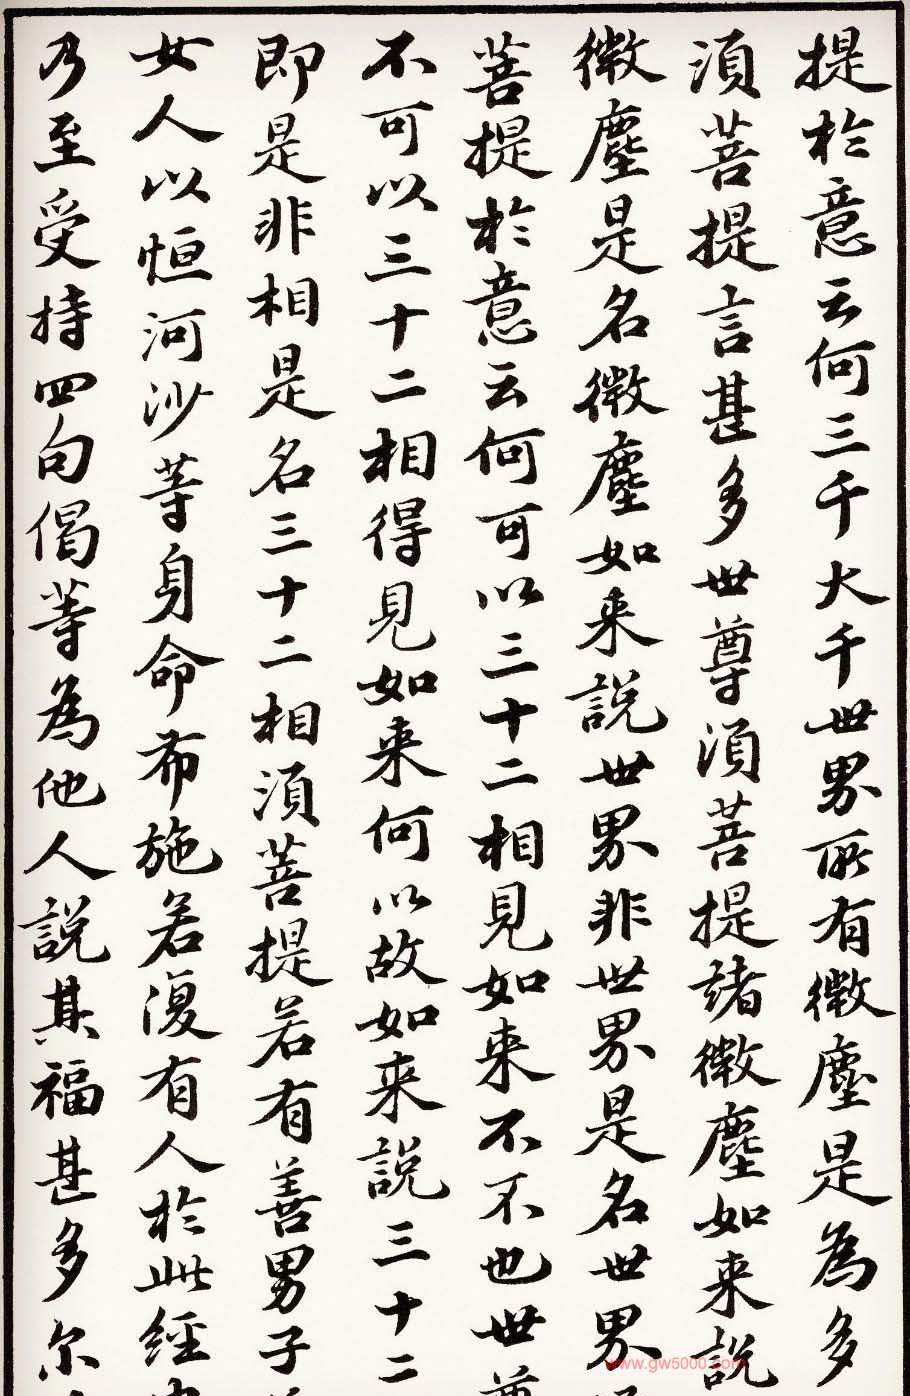 提於意云何三千大千世界所有微塵是為多
須菩提言甚多世尊須菩提諸微塵如来說
微塵是名微塵如来說世界非世界是名世界
菩提於意云何可以三十二相見如来不不也世尊
不可以三十二相得見如来何以故如来說三十二
即是非相是名三十二相須菩提若有善男子
女人以恒河沙等身命布施若復有人於此經
乃至受持四句偈等為他人說其福甚多尔
www.gw5000.com